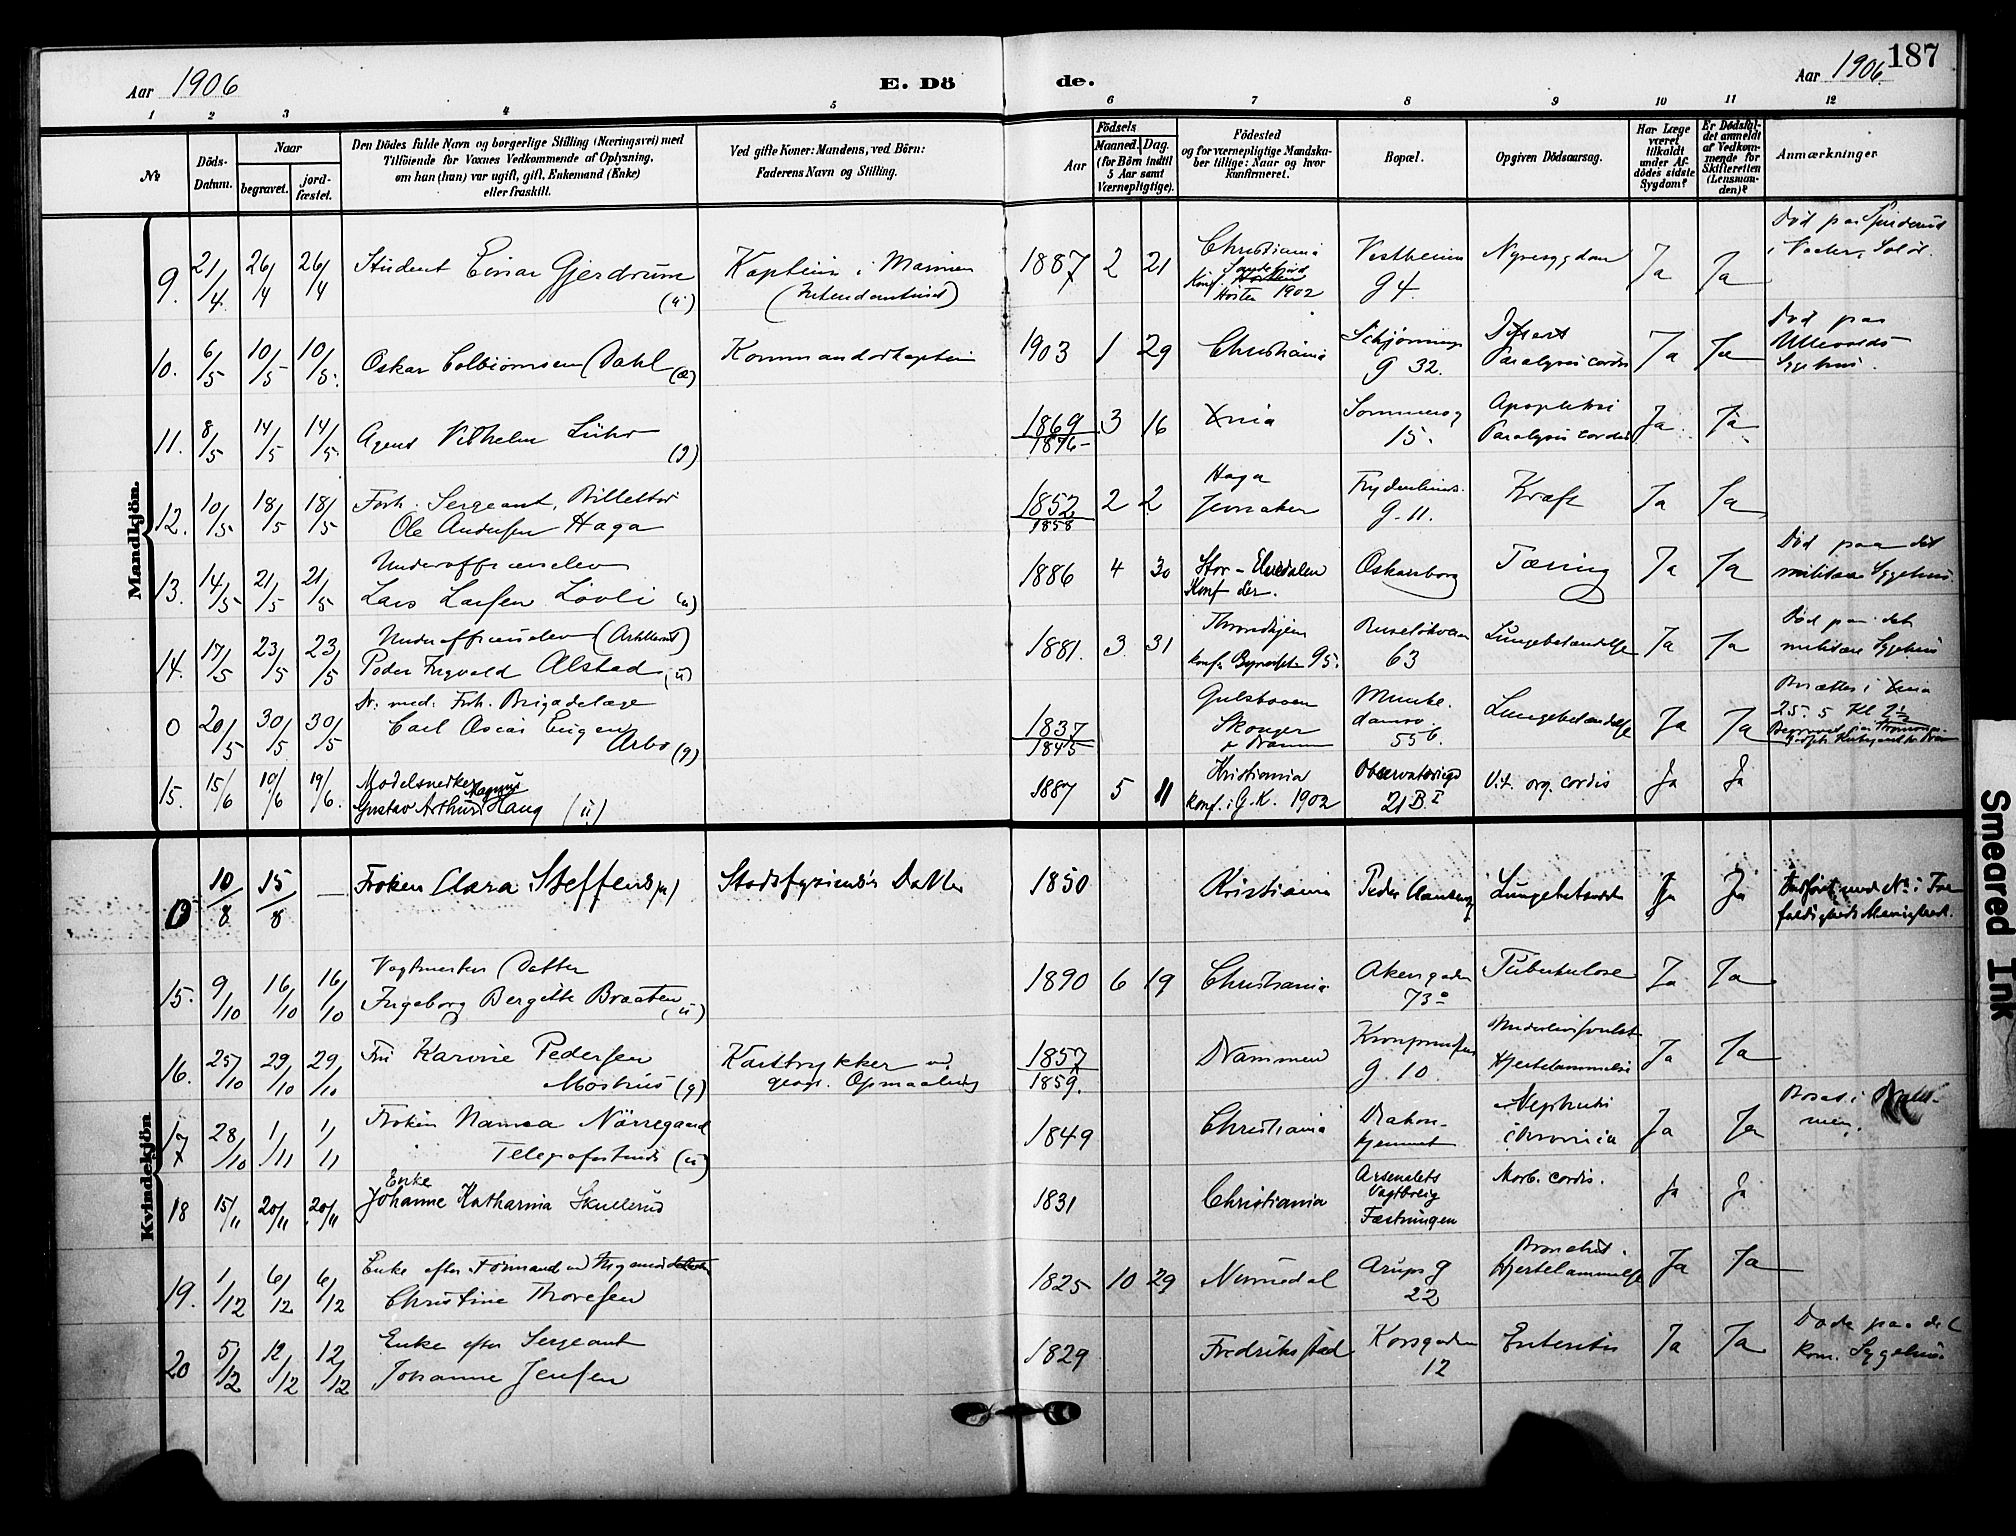 187
Aar 1906
E. Dö
de.
Aar 1906
1 2 3 4 5 6 7 8 9 10 11 12
№
Döds-Datum.
Naar
begravet.
jord-fæstet.
Den Dödes fulde Navn og borgerlige Stilling (Næringsvei) med
Tilföiende for Voxnes Vedkommende af Oplysning,
om han (hun) var ugift, gift, Enkemand (Enke)
eller fraskilt.
Ved gifte Koner: Mandens, ved Börn:
Faderens Navn og Stilling.
Födsels
Aar
Maaned. Dag.
(for Börn indtil
5 Aar samt
Værnepligtige).
Födested
og for værnepligtige Mandska-
ber tillige: Naar og hvor
konfirmeret.
Bopæl.
Opgiven Dödsaarsag.
Har Læge
været
tilkaldt
under Af-
dödes sidste
Sygdom?
Er Dödsfal-
det anmeldt
af Vedkom-
mende for
Skifteretten
(Lensman-
den)?
Anmærkninger
Mandkjön.
9. 21/4. 26/4 26/4 Student Einar Gjerdrum (u) Kaptein i Marinen 1887 2 21 Christiania
Konf. Sandefjord
Høsten 1902
Vestheim
g 4.
Nyresygdom Ja Ja Død paa
10. 6/5 10/5 10/5. Oskar Colbiørnsen Dahl Kommandørkaptein 1903 1 29 Christiania
g 32.
Paralysis cordis Ja Ja Død paa
Ullevolds
Sygehus.
11. 8/5 14/5 14/5. Agent Vilhelm Lühr (g) 1869/1876 3 16 Xnia Sommerog
15.
Apoplexi
Paralysis cordis Ja Ja
12. 10/5 18/5 18/5 Forh. Sergeant, Billettør
Ole Andersen Haga
1852/1858 2 2 Haga
Jevnaker
g. 11.
Kræft Ja Ja
13. 14/5 21/5 21/5 Underofficerselev
Lars Larsen Løvli (u)
1886 4 30 Stor-Elvedalen
Konf der.
Oskarsborg Tæring Ja Ja Død paa det
militære Sygehus.
14. 17/5 23/5 23/5 Underofficerselev (Artilleriet)
Peder Ingvald Alstad (u)
1881. 3 31 Throndhjem
63
Lungebetændelse Ja Ja Død paa det
militære Sygehus
0 20/5 30/5 30/5 Dr. med. Forh. Brigadelæge
Carl Oscar Eugen
Arbo (g)
1837/1845 Gulskoven
Skoger
v. Drammen
Munke-
damsv.
55 b.
Lungebetændelse Ja Ja
25. 5 Kl 2½
15. 15/6 19/6 19/6. Modelsnedker
Gustav Arthur Magnus Haug (u)
1887 5 11 Kristiania
konf. i G. K. 1902
Observatoriegd
21 B. I
Vit. org. cordis Ja Ja
Kvindekjön
0 10/8 15/8 — Frøken Clara Steffens (u) Stadsfysicus's Datter 1850 Kristiania Lungebetændelse Ja Ja Indført med № i Tre-
foldigheds Menighed.
15. 9/10 16/10 16/10 Vagtmester Datter
Ingeborg Bergitte Braaten (u)
1890 6 19 Christiania Akersgaden
73 a
Tuberkulose Ja Ja
16. 25/10 29/10 29/10 Fru Karine Pedersen
Moshus (g)
Karttrykker ved
geogr. Opmaaling
1857/1859. Drammen Kronprinsens
g. 10.
Hjertelammelse Ja Ja
17 28/10 1/11 1/11 Frøken Nanna Nørregaard
Telegrafistinde (u)
1849 Christiania
Nephritis
chronicia Ja Ja Bosat i Dram-
men.
18 15/11 20/11 20/11 Enke
Johanne Katharina Skullerud
1831 Christiania Arsenalets
Vagtbolig
Fæstningen
Morb. cordis. Ja Ja
19. 1/12 6/12 6/12 Enke efter Formand
Christine Thoresen
1825 10 29 Numedal Arups g
22
Bronchit.
Hjertelammelse Ja Ja
20 5/12 12/12 12/12 Enke efter Sergeant
Johanne Jensen
1829 Fredrikstad Korsgaden
12
Enteritis Ja Ja Døde paa det
kom. Sygehus
Smeared Ink